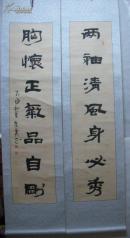 两袖清风身必秀
胸怀正气品自刚